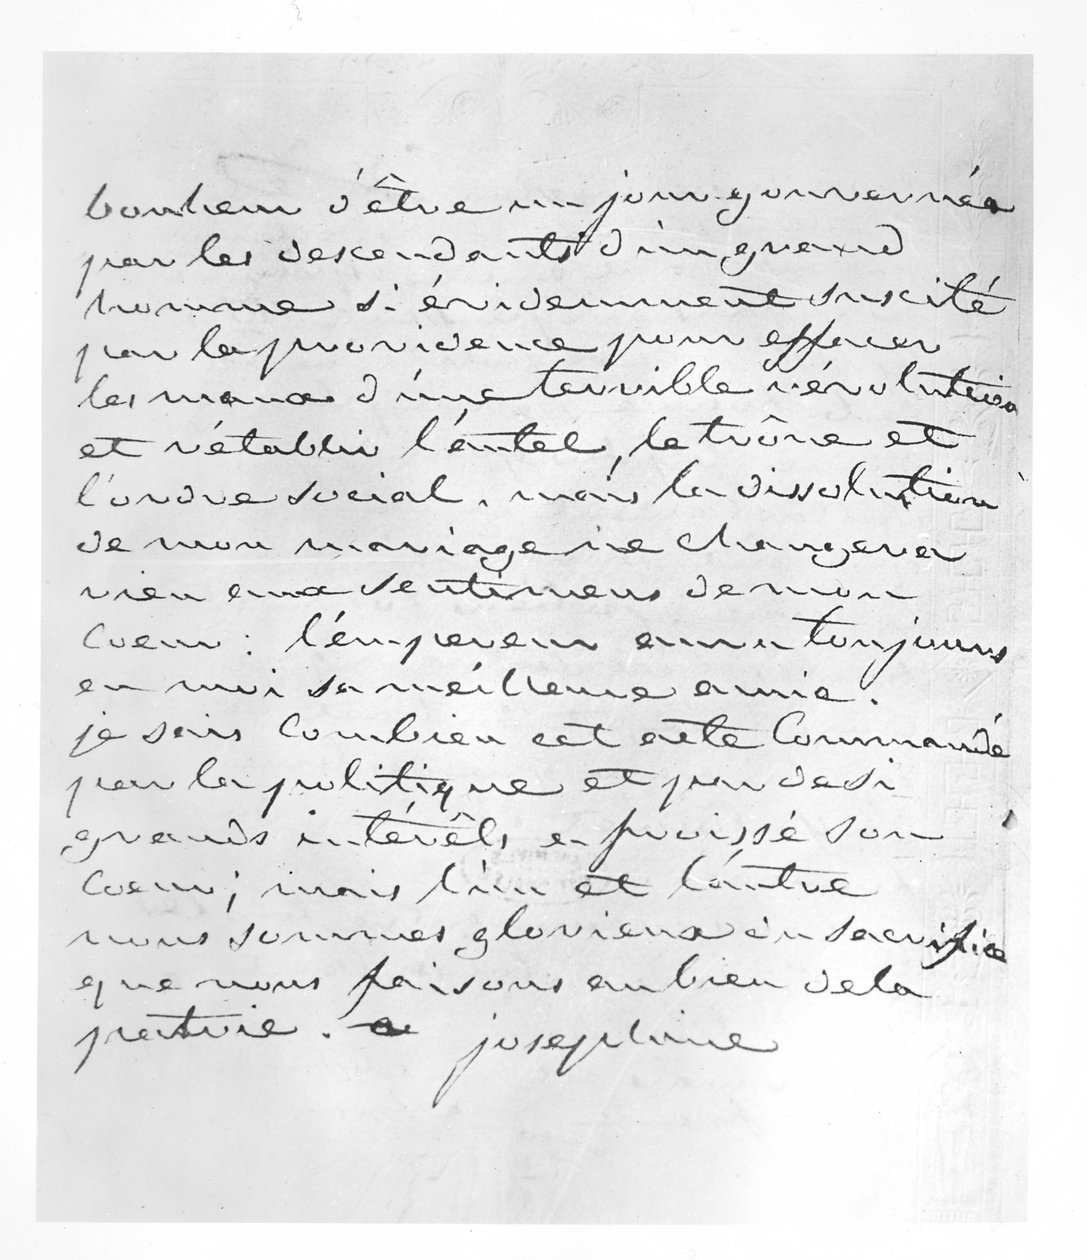 bonheur d'être un jour gouvernée
par les descendants d'un grand
homme si évidemment suscité
par la providence pour effacer
les maux d'une terrible révolution
et rétablir l'autel, le trône et
l'ordre social. mais la dissolution
de mon mariage ne changera
rien aux sentimens de mon
coeur : l'empereur aura toujours
en moi sa meilleure amie.
je sais combien cet acte commandé
par la politique et par de si
grands intérêts a froissé son
coeur ; mais l'un et l'autre
nous sommes glorieux du sacrifice
que nous faisons au bien de la
patrie. josephine